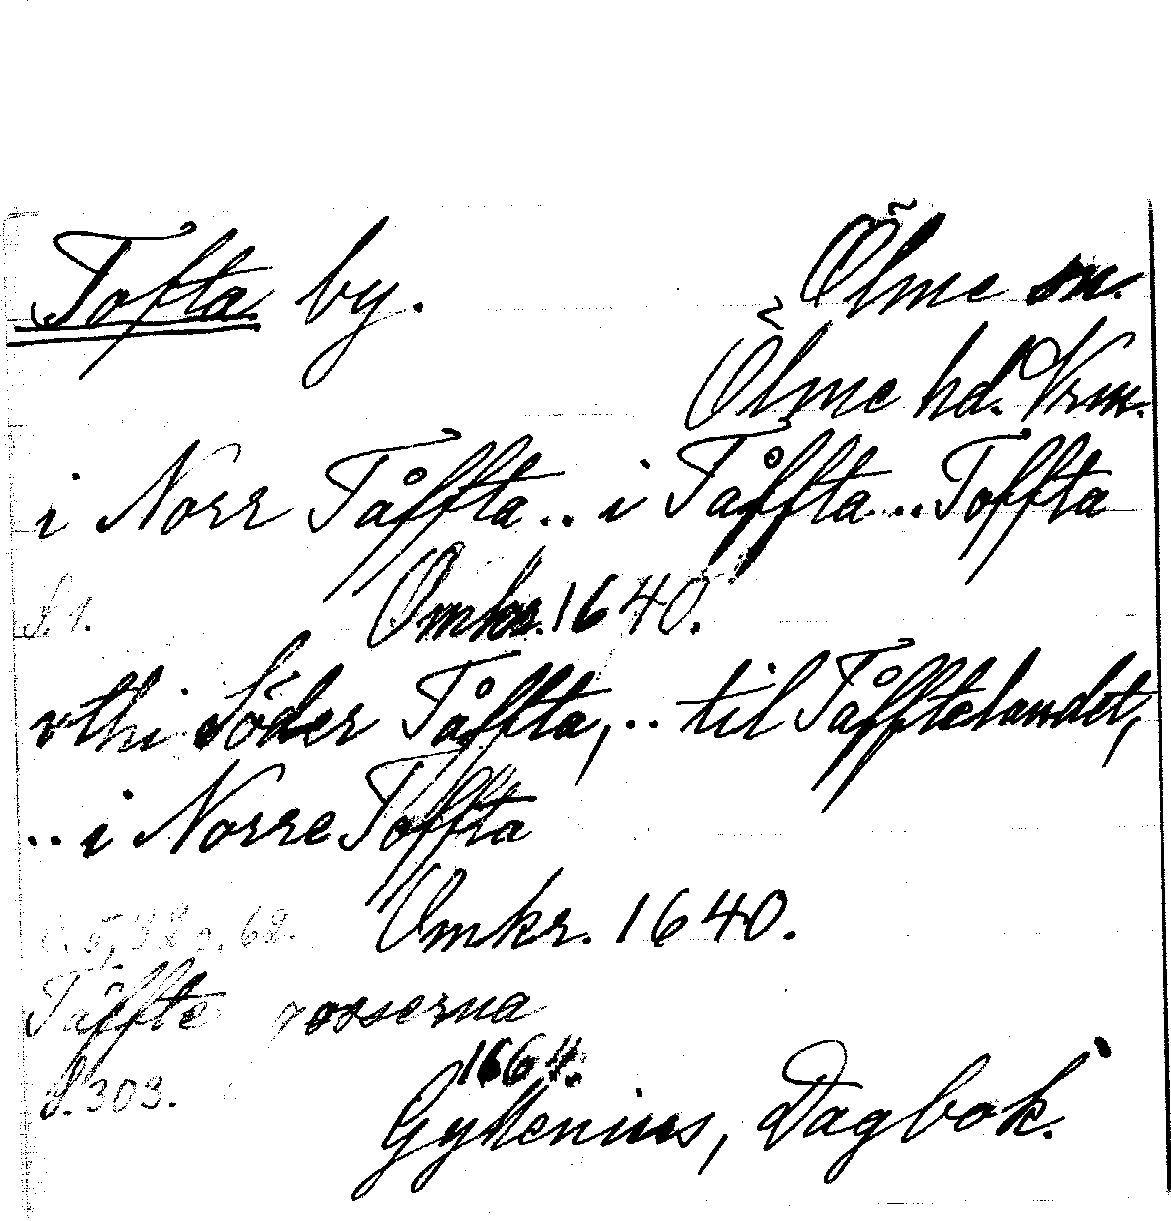 Tofta by. Ölme sn.
Ölme hd. Vrm.
i Norr Tåffta.. i Tåffta..Toffta
S.1. Omkr. 1640.
vthi Söder Tåffta,.. til Tåfftelandet,
..i Norre Toffta
Omkr. 1640.
Tåffte gosserna
S.303. 1664.
Gyllenius, Dagbok.